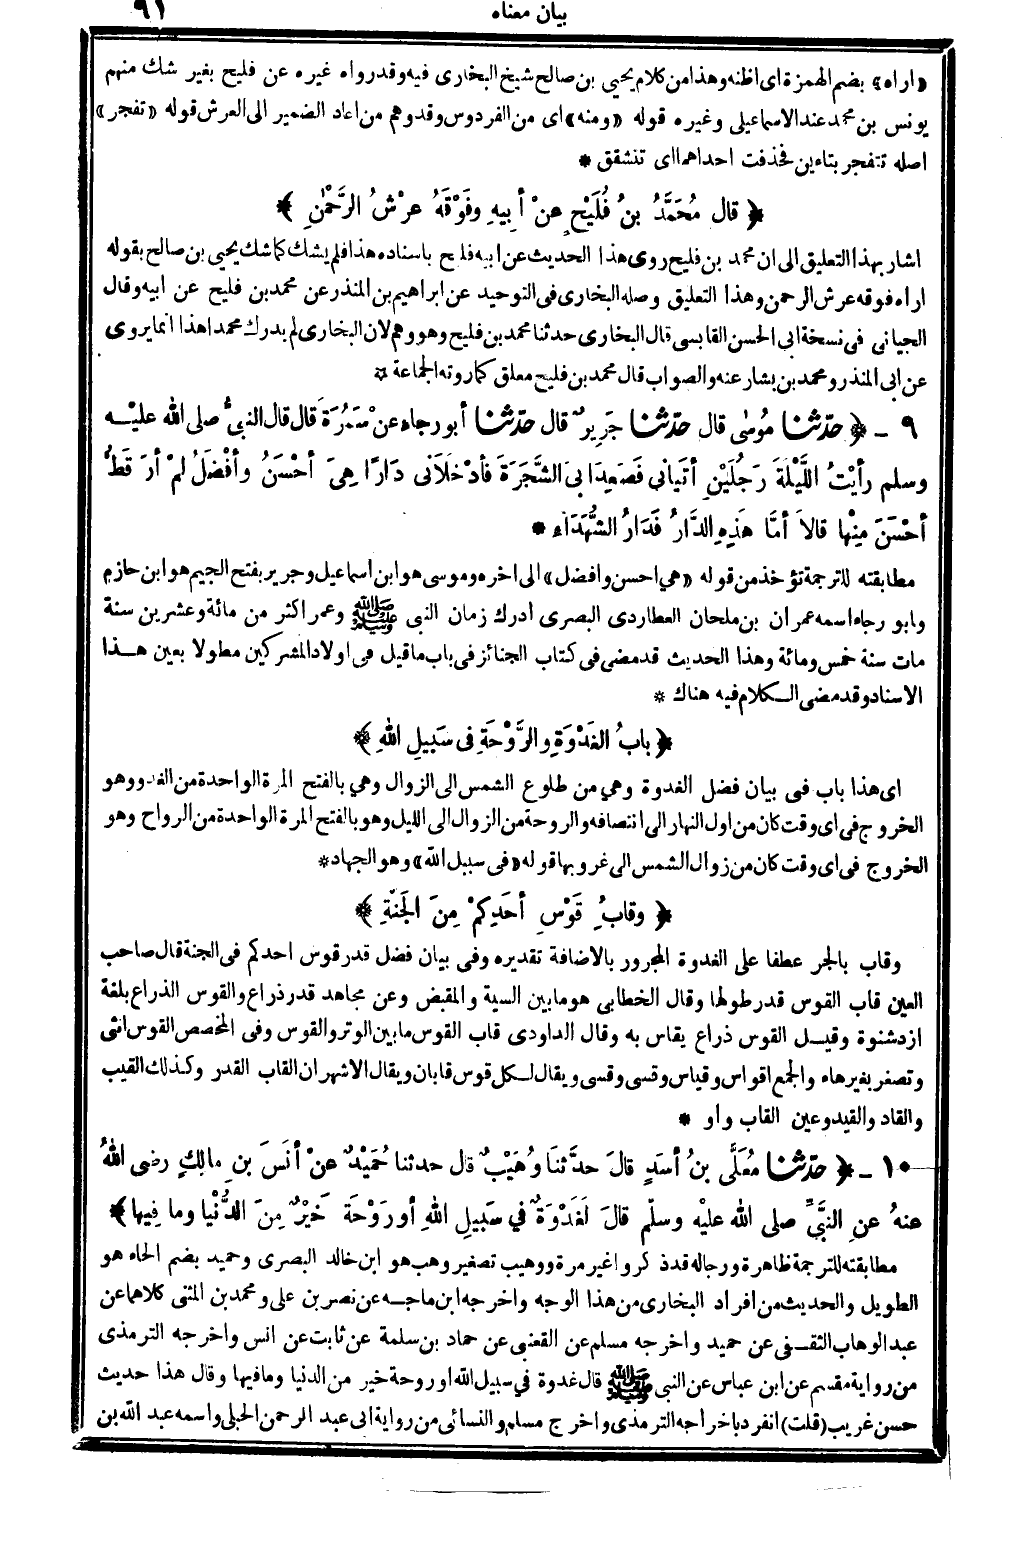 بيان معناه ٩١
«اراه» بضم الهمزة اى اظنه وهذا من كلام يحيى بن صالح شيخ البخارى فيه وقد رواه غيره عن فليح بغير شك منهم
يونس بن محمد عند الاسماعيلى وغيره قوله «ومنه» اى من الفردوس وقد وهم من اعاد الضمير الى العرش قوله «تفجر»
اصله تتفجر بتاءين فحذفت احداهما اى تنشقق *
﴿ قال مُحَمَّدُ بنُ فُلَيْحٍ عنْ أبِيهِ وفَوْقَهُ عرْشُ الرَّحْمٰنِ ﴾
اشار بهذا التعليق الى ان محمد بن فليح روى هذا الحديث عن ابيه فليح باسناده هذا فلم يشك كما شك يحيى بن صالح بقوله
اراه فوقه عرش الرحمن وهذا التعليق وصله البخارى فى التوحيد عن ابراهيم بن المنذر عن محمد بن فليح عن ابيه وقال
الجيانى فى نسخة ابى الحسن القابسى قال البخارى حدثنا محمد بن فليح وهو وهم لان البخارى لم يدرك محمدا هذا انما يروى
عن ابى المنذر ومحمد بن بشار عنه والصواب قال محمد بن فليح معلق كما روته الجماعة *
٩ ـ ﴿ حدّثنا مُوسٰى قال حدّثنا جَرِيرٌ قال حدّثنا أبو رجاء عنْ سَمُرَةَ قال قال النبىُّ صلى الله عليـه
وسلم رأيْتُ اللَّيْلَةَ رَجُلَيْنِ أتَيانِي فَصَعِدَا بِىَ الشَّجَرَةَ فأدْخَلَانِى دَارًا هِىَ أحْسَنُ وأفْضَلُ لمْ أرَ قَطُّ
أحْسَنَ مِنْها قالاَ أمَّا هَذِهِ الدَّارُ فَدَارُ الشُّهَدَاءِ *
مطابقته للترجمة تؤخذ من قوله «هي احسن وافضل» الى اخره وموسى هو ابن اسماعيل وجرير بفتح الجيم هو ابن حازم
وابو رجاء اسمه عمران بن ملحان العطاردى البصرى أدرك زمان النبى ﷺ وعمر اكثر من مائة وعشرين سنة
مات سنة خمس ومائة وهذا الحديث قد مضى فى كتاب الجنائز فى باب ما قيل فى اولاد المشركين مطولا بعين هـذا
الاسناد وقد مضى الـكلام فيه هناك *
﴿ بابُ الغَدْوَةِ والرَّوْحَةِ فى سَبِيلِ اللهِ ﴾
اى هذا باب فى بيان فضل الغدوة وهي من طلوع الشمس الى الزوال وهي بالفتح المرة الواحدة من الغدو وهو
الخروج فى اى وقت كان من اول النهار الى انتصافه والروحة من الزوال الى الليل وهو بالفتح المرة الواحدة من الرواح وهو
الخروج فى اى وقت كان من زوال الشمس الى غروبها قوله «فى سبيل الله» وهو الجهاد *
﴿ وقابُ قَوْسِ أحَدِكمْ مِنَ الجَنَّةِ ﴾
وقاب بالجر عطفا على الغدوة المجرور بالاضافة تقديره وفى بيان فضل قدر قوس احدكم فى الجنة قال صاحب
العين قاب القوس قدر طولها وقال الخطابى هو ما بين السية والمقبض وعن مجاهد قدر ذراع والقوس الذراع بلغة
ازد شنوة وقيـل القوس ذراع يقاس به وقال الداودى قاب القوس ما بين الوتر والقوس وفى المخصص القوس انثى
وتصغر بغير هاء والجمع اقواس وقياس وقسى وقسى ويقال لـكل قوس قابان ويقال الاشهر ان القاب القدر وكذلك القيب
والقاد والقيد وعين القاب واو *
١٠ ـ ﴿ حدّثنا مُعَلَّى بنُ أسَدٍ قالَ حدَّثنَا وُهَيْبٌ قل حدثنا حُمَيْدٌ عنْ أنَسَ بنِ مالِكٍ رضى اللهُ
عنهُ عنِ النبىِّ صلى الله عليْه وسلّم قالَ لَغَدْوَةٌ في سَبِيلِ اللهِ أو رَوْحَة خَيْرٌ مِنَ الدُّنْيا وما فِيها ﴾
مطابقته للترجمة ظاهرة ورجاله قد ذكروا غير مرة ووهيب تصغير وهب هو ابن خالد البصرى وحميد بضم الحاء هو
الطويل والحديث من افراد البخارى من هذا الوجه واخرجه ابن ماجـه عن نصر بن على ومحمد بن المثنى كلاهما عن
عبد الوهاب الثقـفى عن حميد واخرجه مسلم عن القعنبى عن حماد بن سلمة عن ثابت عن انس واخرجه الترمذى
من رواية مقسم عن ابن عباس عن النبى ﷺ قال غدوة في سبيل الله او روحة خير من الدنيا وما فيها وقال هذا حديث
حسن غريب (قلت) انفرد باخراجه الترمذى واخرج مسلم والنسائى من رواية ابى عبد الرحمن الحبلى واسمه عبد الله بن